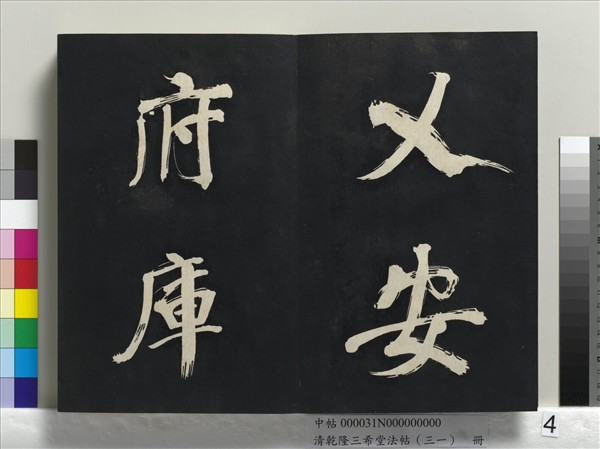 乂安
府庫
中帖 000031N000000000
清乾隆三希堂法帖（三一） 冊
4